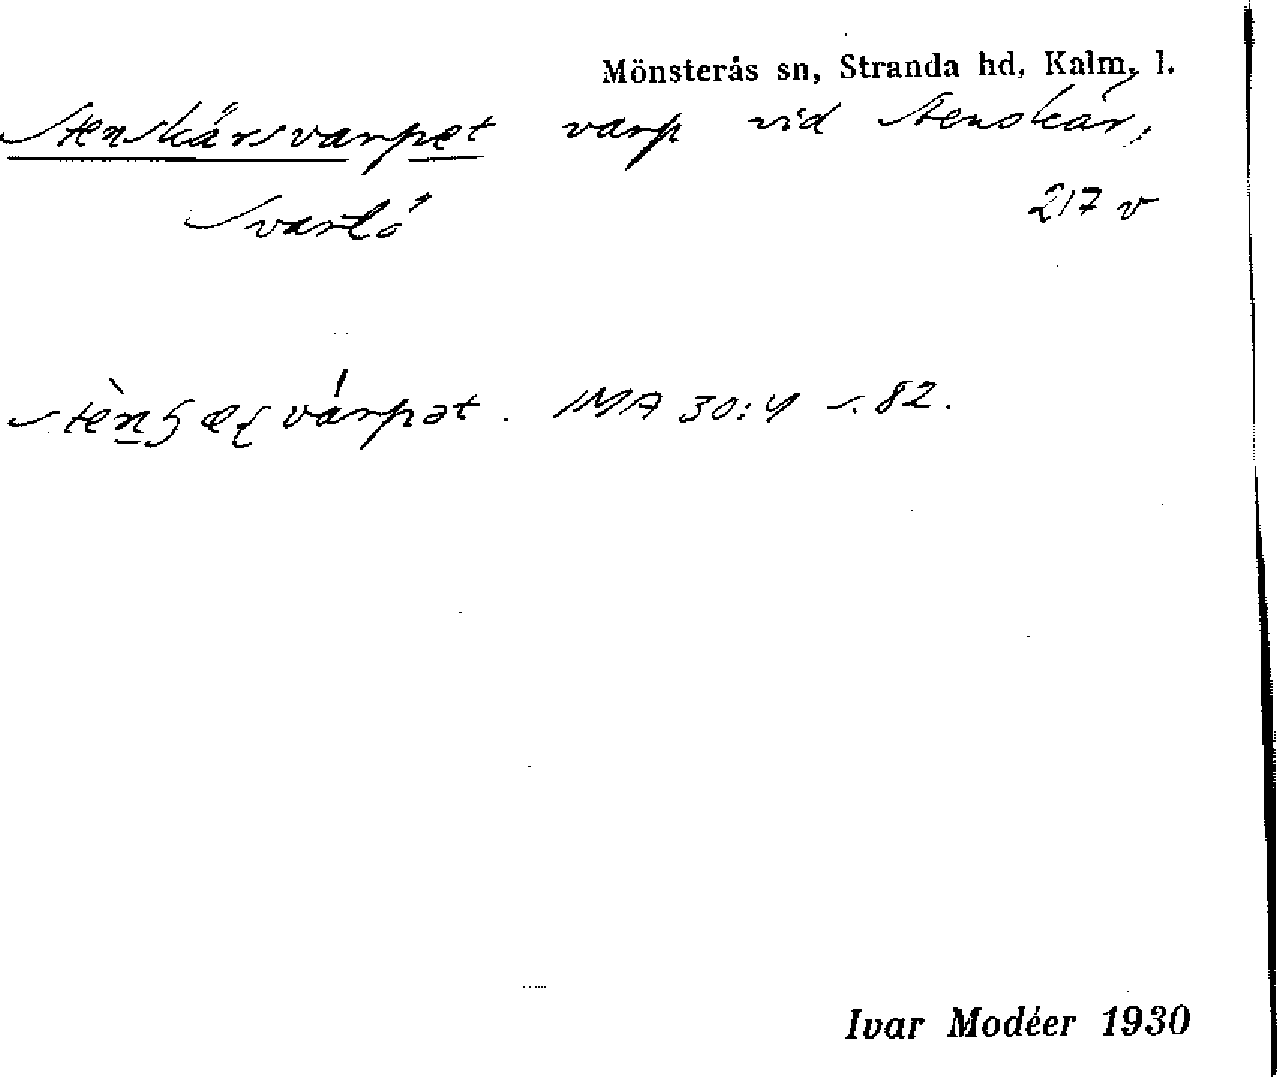 Mönsterås sn, Stranda hd, Kalm. l.
Stenskärsvarpet varp vid Stenskär,
Svartö 217 v
IMA 30:4 s. 82.
Ivar Modéer 1930